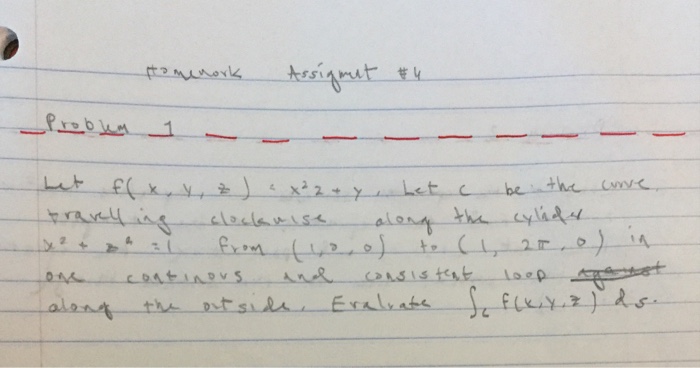 Homework Assigmet #4
Problem 1
Let f(x, y, z) = x²z + y. Let c be the curve
travelling clockwise along the cylinder
x² + z² = 1 from (1, 0, 0) to (1, 2π, 0) in
one continous and consistent loop against
along the outside. Evaluate ∫c f(x, y, z) ds.